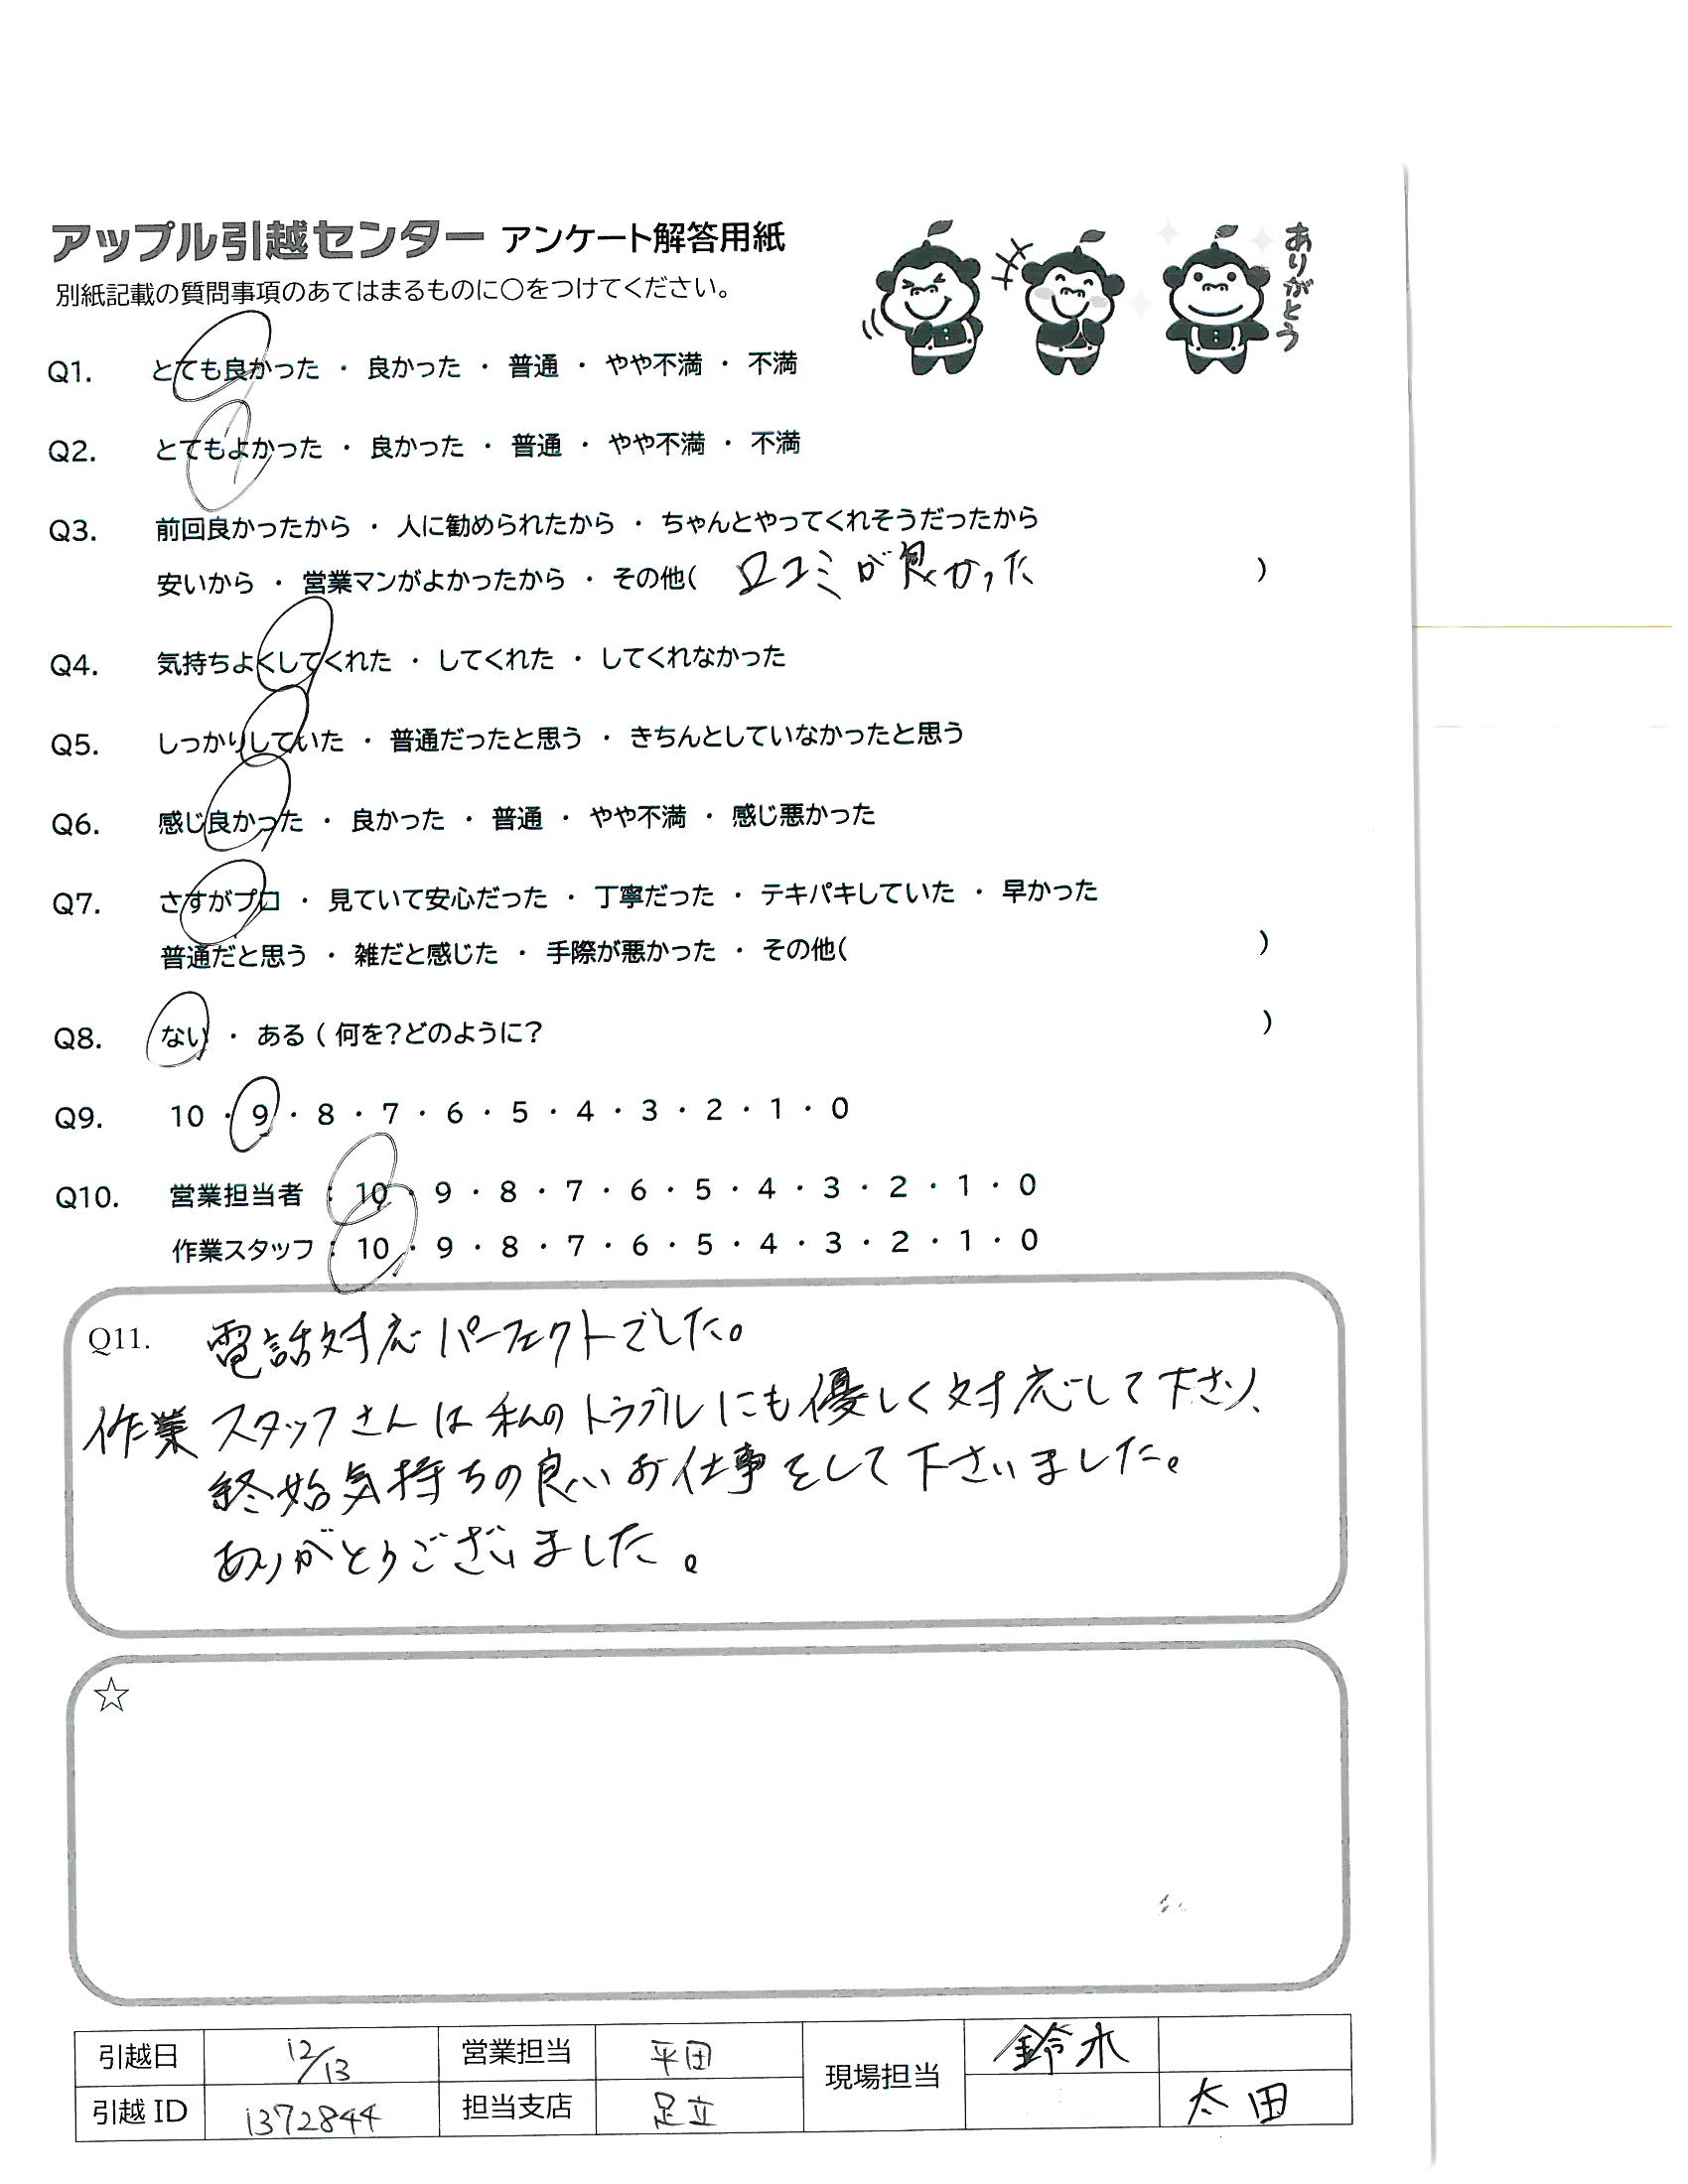 アップル引越センター アンケート解答用紙
別紙記載の質問事項のあてはまるものに○をつけてください。
ありがとう
Q1. とても良かった ・ 良かった ・ 普通 ・ やや不満 ・ 不満
Q2. とてもよかった ・ 良かった ・ 普通 ・ やや不満 ・ 不満
Q3. 前回良かったから ・ 人に勧められたから ・ ちゃんとやってくれそうだったから
安いから ・ 営業マンがよかったから ・ その他( 口コミが良かった )
Q4. 気持ちよくしてくれた ・ してくれた ・ してくれなかった
Q5. しっかりしていた ・ 普通だったと思う ・ きちんとしていなかったと思う
Q6. 感じ良かった ・ 良かった ・ 普通 ・ やや不満 ・ 感じ悪かった
Q7. さすがプロ ・ 見ていて安心だった ・ 丁寧だった ・ テキパキしていた ・ 早かった
普通だと思う ・ 雑だと感じた ・ 手際が悪かった ・ その他( )
Q8. ない ・ ある ( 何を?どのように? )
Q9. 10 ・ 9 ・ 8 ・ 7 ・ 6 ・ 5 ・ 4 ・ 3 ・ 2 ・ 1 ・ 0
Q10. 営業担当者 : 10 ・ 9 ・ 8 ・ 7 ・ 6 ・ 5 ・ 4 ・ 3 ・ 2 ・ 1 ・ 0
作業スタッフ : 10 ・ 9 ・ 8 ・ 7 ・ 6 ・ 5 ・ 4 ・ 3 ・ 2 ・ 1 ・ 0
Q11. 電話対応パーフェクトでした。
作業スタッフさんは私のトラブルにも優しく対応して下さり、
終始気持ちの良いお仕事をして下さいました。
ありがとうございました。
☆
引越日 12/13 営業担当 平田 現場担当 鈴木
引越 ID 1372844 担当支店 足立 太田